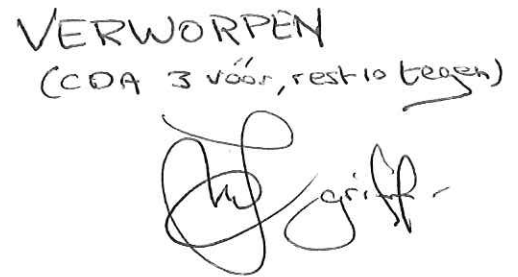 VERWORPEN
(CDA 3 vóór, rest 10 tegen)
griff.